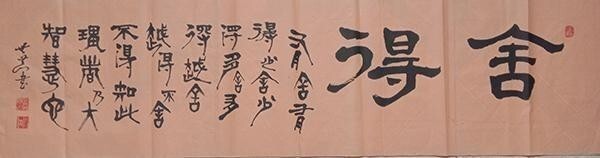 舍得
有舍有
得少舍少
得多舍多
得越舍
越得不舍
不得知此
理者乃大
智慧也